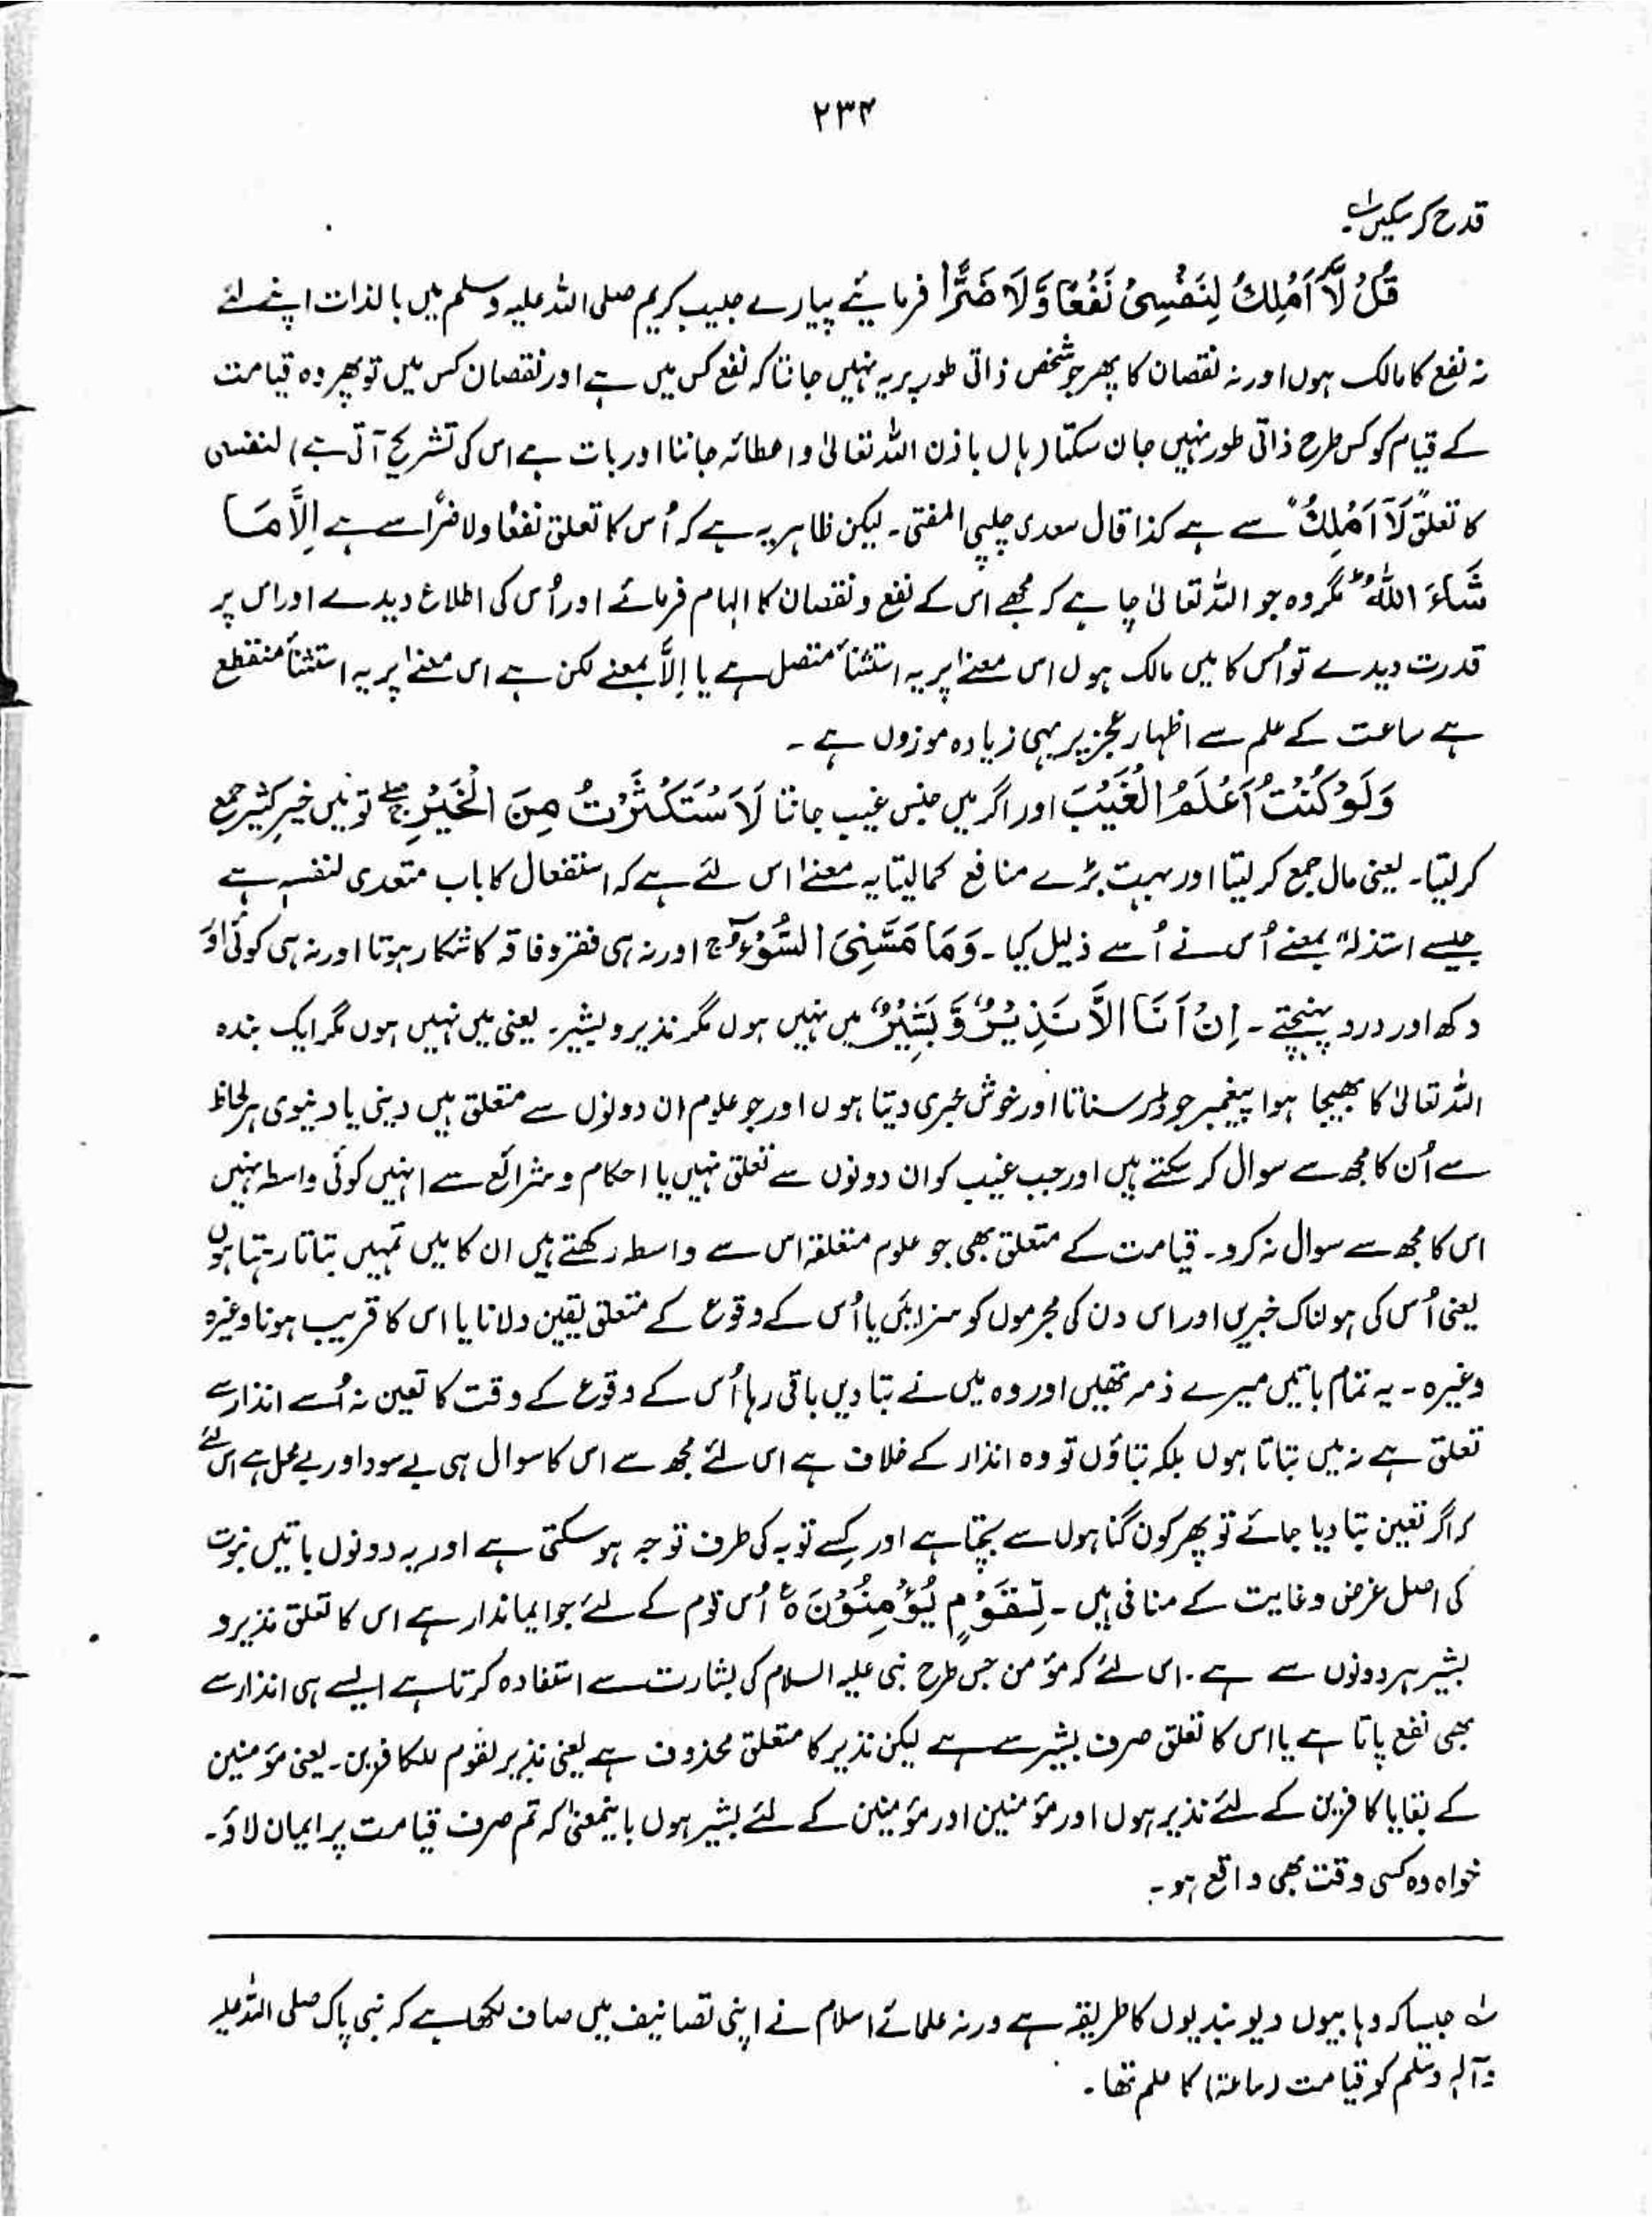 ۲۳۴
قدح کر سکیں؂۱۔
قُلْ لَّآ اَمْلِکُ لِنَفْسِیْ نَفْعًا وَّلَا ضَرًّا فرمایئے پیارے حبیب کریم صلی اللہ علیہ وسلم میں بالذات اپنے لئے
نہ نفع کا مالک ہوں اور نہ نقصان کا پھر جو شخص ذاتی طور پر یہ نہیں جانتا کہ نفع کس میں ہے اور نقصان کس میں تو پھر وہ قیامت
کے قیام کو کس طرح ذاتی طور نہیں جان سکتا (ہاں باذن اللہ تعالیٰ و اعطائہ جاننا اور بات ہے اس کی تشریح آتی ہے) لنفسی
کا تعلق لَآ اَمْلِکُ سے ہے کذا قال سعدی چلپی المفتی۔ لیکن ظاہر یہ ہے کہ اُس کا تعلق نفعًا ولا ضرًا سے ہے اِلَّا مَا
شَآءَ اللّٰہُ ط مگر وہ جو اللہ تعالیٰ چاہے کہ مجھے اس کے نفع و نقصان کا الہام فرمائے اور اُس کی اطلاع دیدے اور اس پر
قدرت دیدے تو اُس کا میں مالک ہوں اس معنےٰ پر یہ استثنأ متصل ہے یا اِلَّا بمعنے لکن ہے اس معنےٰ پر یہ استثنأ منقطع
ہے ساعت کے علم سے اظہار عجز پر یہی زیادہ موزوں ہے۔
وَلَوْ کُنْتُ اَعْلَمُ الْغَیْبَ اور اگر میں جنس غیب جانتا لَا سْتَکْثَرْتُ مِنَ الْخَیْرِ ج تو میں خیرِ کثیر جمع
کر لیتا۔ یعنی مال جمع کر لیتا اور بہت بڑے منافع کما لیتا یہ معنےٰ اس لئے ہے کہ استفعال کا باب متعدی لنفسہٖ ہے
جیسے استذلہٗ بمعنے اُس نے اُسے ذلیل کیا۔ وَمَا مَسَّنِیَ السُّوْٓءُ ج اور نہ ہی فقر و فاقہ کا شکار ہوتا اور نہ ہی کوئی اَور
دکھ اور درد پہنچتے۔ اِنْ اَنَا اِلَّا نَذِیْرٌ وَّ بَشِیْرٌ میں نہیں ہوں مگر نذیر و بشیر۔ یعنی میں نہیں ہوں مگر ایک بندہ
اللہ تعالیٰ کا بھیجا ہوا پیغمبر جو ڈر سناتا اور خوش خبری دیتا ہوں اور جو علوم ان دونوں سے متعلق ہیں دینی یا دنیوی ہر لحاظ
سے اُن کا مجھ سے سوال کر سکتے ہیں اور جب غیب کو ان دونوں سے تعلق نہیں یا احکام و شرائع سے انہیں کوئی واسطہ نہیں
اس کا مجھ سے سوال نہ کرو۔ قیامت کے متعلق بھی جو علوم متعلقہ اس سے واسطہ رکھتے ہیں ان کا میں تمہیں بتاتا رہتا ہوں
یعنی اُس کی ہولناک خبریں اور اس دن کی مجرموں کو سزائیں یا اُس کے وقوع کے متعلق یقین دلانا یا اس کا قریب ہونا وغیرہ
وغیرہ۔ یہ تمام باتیں میرے ذمہ تھیں اور وہ میں نے بتا دیں باقی رہا اُس کے وقوع کے وقت کا تعین نہ اُسے انذار سے
تعلق ہے نہ میں بتاتا ہوں بلکہ بتاؤں تو وہ انذار کے خلاف ہے اس لئے مجھ سے اس کا سوال ہی بے سود اور بے محل ہے اس لئے
کہ اگر تعین بتا دیا جائے تو پھر کون گناہوں سے بچتا ہے اور کسے توبہ کی طرف توجہ ہو سکتی ہے اور یہ دونوں باتیں نبوت
کی اصل غرض و غایت کے منافی ہیں۔ لِّقَوْمٍ یُّؤْمِنُوْنَ ہ ع اُس قوم کے لئے جو ایماندار ہے اس کا تعلق نذیر و
بشیر ہر دونوں سے ہے۔ اس لئے کہ مؤمن جس طرح نبی علیہ السلام کی بشارت سے استفادہ کرتا ہے ایسے ہی انذار سے
بھی نفع پاتا ہے یا اس کا تعلق صرف بشیر سے ہے لیکن نذیر کا متعلق محذوف ہے یعنی نذیر لقوم للکافرین۔ یعنی مؤمنین
کے بقایا کافرین کے لئے نذیر ہوں اور مؤمنین اور مؤمنین کے لئے بشیر ہوں باینمعنیٰ کہ تم صرف قیامت پر ایمان لاؤ۔
خواہ وہ کسی وقت بھی واقع ہو۔
؂۱ جیسا کہ وہابیوں دیوبندیوں کا طریقہ ہے ورنہ علمائے اسلام نے اپنی تصانیف میں صاف لکھا ہے کہ نبی پاک صلی اللہ علیہ
وآلہٖ وسلم کو قیامت (ساعۃ) کا علم تھا۔